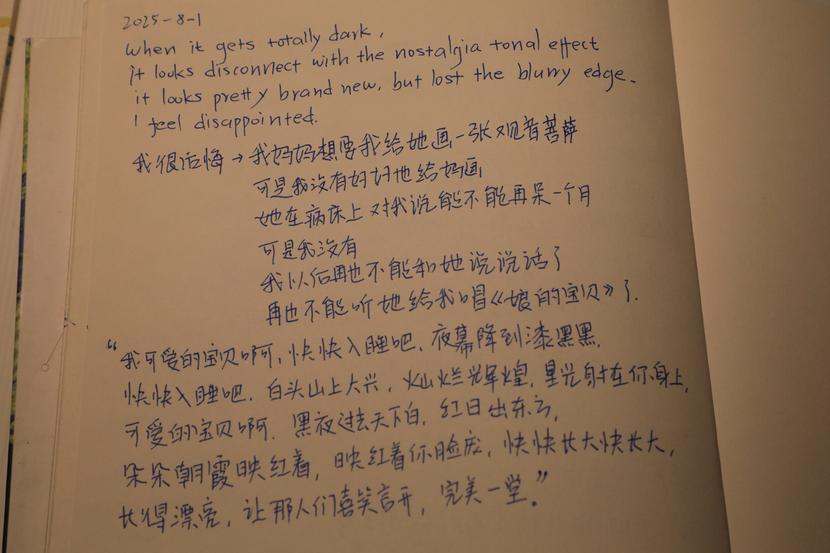 2025-8-1
when it gets totally dark,
it looks disconnect with the nostalgia tonal effect
it looks pretty brand new, but lost the blurry edge.
I feel disappointed.
我很后悔 → 我妈妈想要我给她画一张观音菩萨
可是我没有好好地给妈画
她在病床上对我说能不能再呆一个月
可是我没有
我以后再也不能和她说说话了
再也不能听她给我唱《娘的宝贝》了.
“我可爱的宝贝啊, 快快入睡吧. 夜幕降到漆黑黑,
快快入睡吧. 白头山上大兴, 灿烂辉煌, 星光射在你身上,
可爱的宝贝啊. 黑夜过去天下白, 红日出东方,
朵朵朝霞映红着, 映红着你脸庞, 快快长大快长大,
长得漂亮, 让那人们喜笑言开, 完美一堂。”